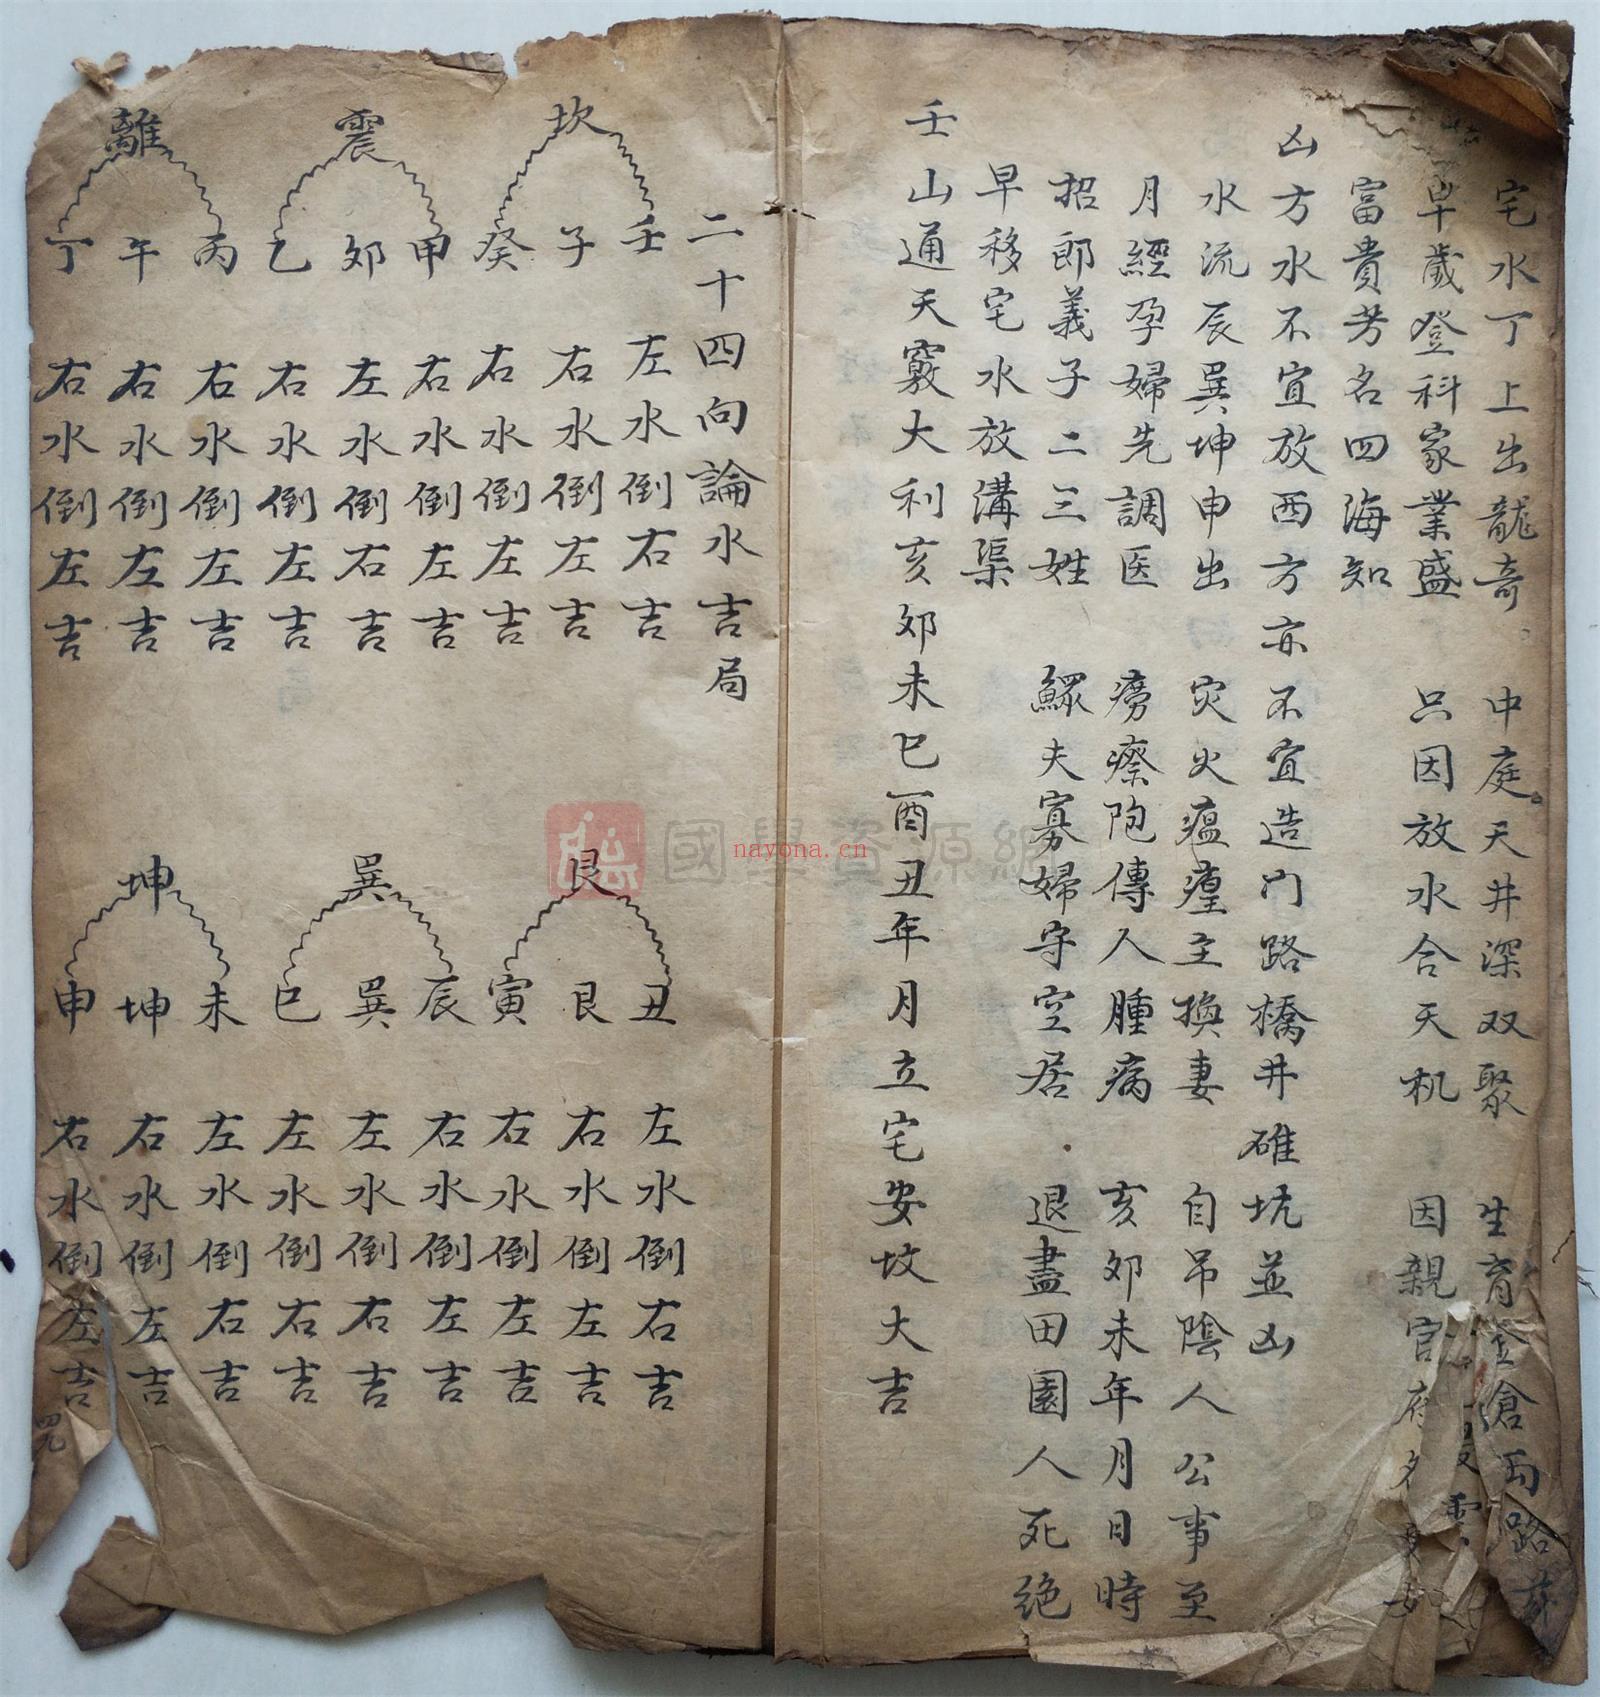 宅水丁上出龍奇 中庭天井深双聚 生育金倉兩路
早歲登科家業盛 只因放水合天机 因親官府
富貴芳名四海知
凶方水不宜放酉方亦不宜造门路橋井碓坑並凶
水流辰巽坤申出 灾火瘟瘟主換妻 自吊陰人公事至
月經孕婦先調医 癆瘵疱傳人腫病 亥夘未年月日時
招郎義子二三姓 鰥夫寡婦守空居 退盡田園人死絶
早移宅水放溝渠
壬山通天竅大利亥夘未巳酉丑年月立宅安坟大吉
二十四向論水吉局
坎
壬 左水倒右吉
子 右水倒左吉
癸 右水倒左吉
震
甲 右水倒左吉
夘 左水倒右吉
乙 右水倒左吉
離
丙 右水倒左吉
午 右水倒左吉
丁 右水倒左吉
艮
丑 左水倒右吉
艮 右水倒左吉
寅 右水倒左吉
巽
辰 右水倒左吉
巽 左水倒右吉
巳 左水倒右吉
坤
未 左水倒右吉
坤 右水倒左吉
申 右水倒左吉
國學資源網
nayona.cn